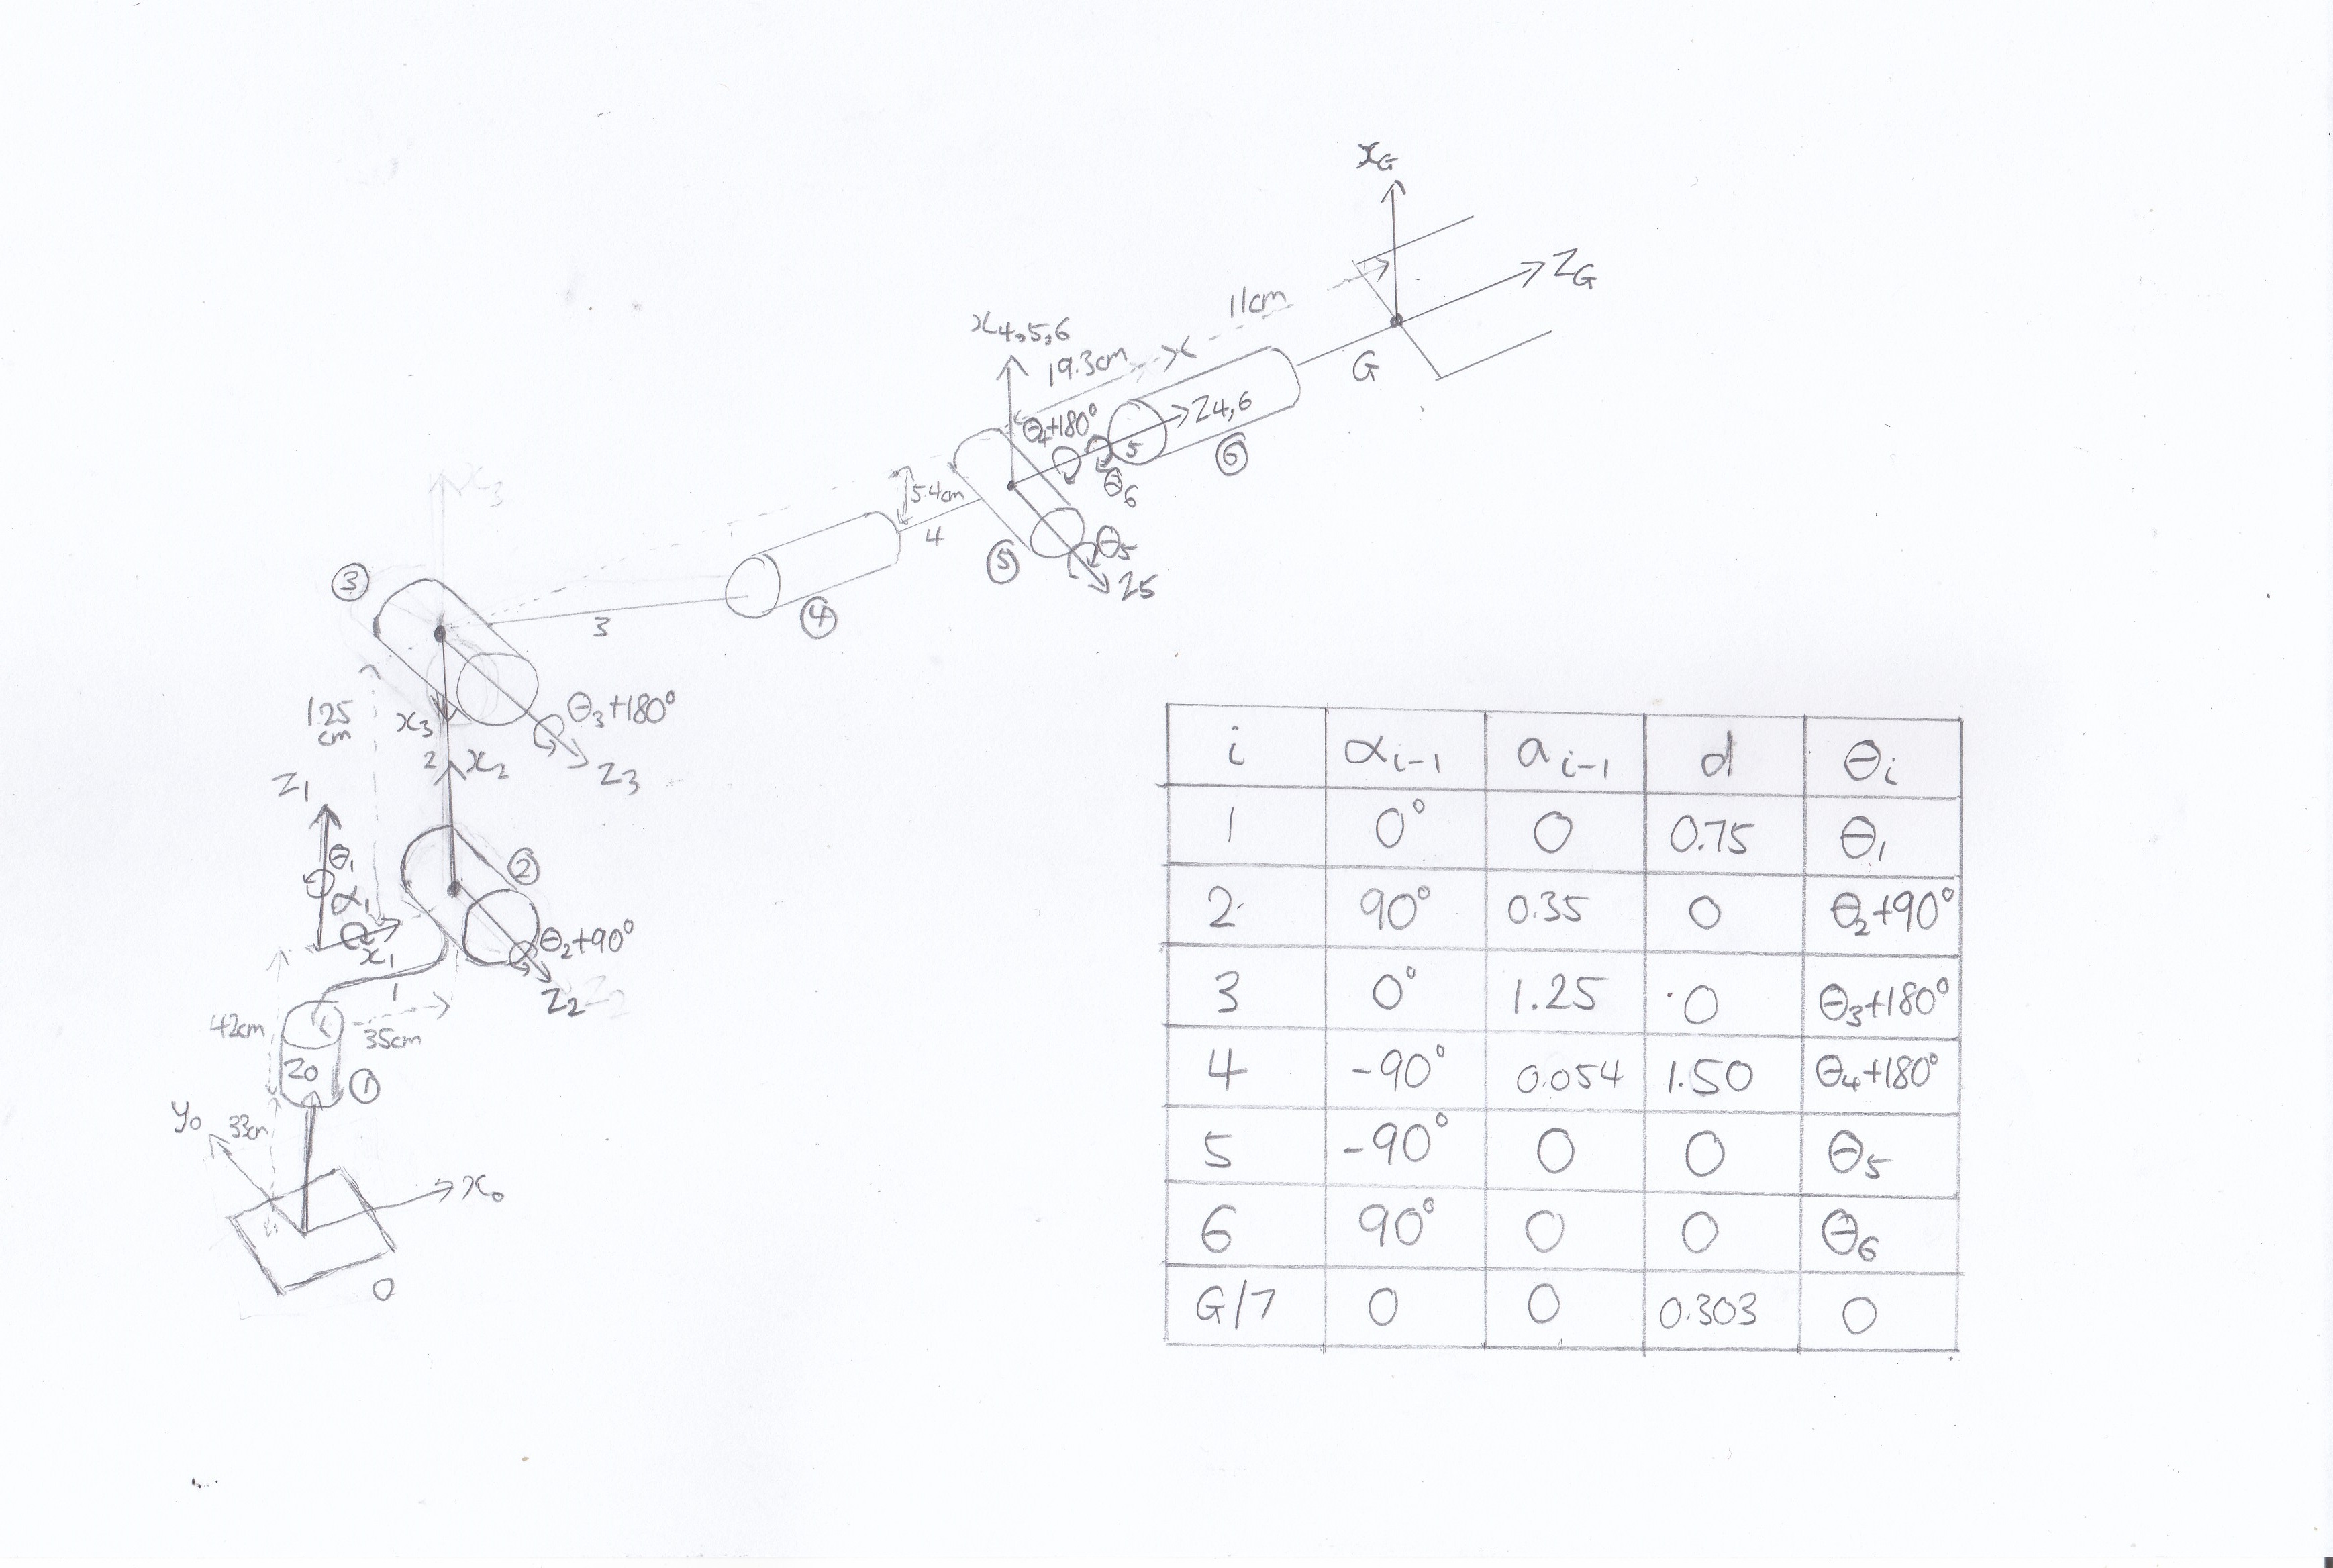 xG
ZG
11cm
G
x4,5,6
19.3cm
θ4+180°
Z4,6
5
θ6
6
5.4cm
4
5
θ5
Z5
x3
3
3
4
θ3+180°
Z3
125
cm
x3
2
x2
Z1
θ1
α1
x1
2
θ2+90°
Z2
1
42cm
35cm
Z0
1
y0
33cm
x0
0
i αi-1 ai-1 d θi
1 0° 0 0.75 θ1
2 90° 0.35 0 θ2+90°
3 0° 1.25 0 θ3+180°
4 -90° 0.054 1.50 θ4+180°
5 -90° 0 0 θ5
6 90° 0 0 θ6
G/7 0 0 0.303 0